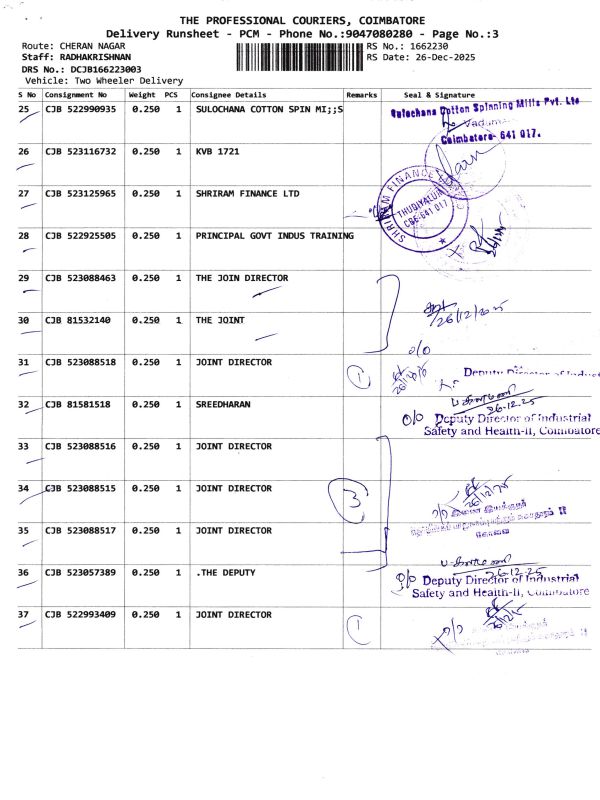 THE PROFESSIONAL COURIERS, COIMBATORE
Delivery Runsheet - PCM - Phone No.:9047080280 - Page No.:3
Route: CHERAN NAGAR RS No.: 1662230
Staff: RADHAKRISHNAN RS Date: 26-Dec-2025
DRS No.: DCJB166223003
Vehicle: Two Wheeler Delivery
S No Consignment No Weight PCS Consignee Details Remarks Seal & Signature
25 CJB 522990935 0.250 1 SULOCHANA COTTON SPIN MI;;S
Sulochana Cotton Spinning Mills Pvt. Ltd
Coimbatore- 641 017.
26 CJB 523116732 0.250 1 KVB 1721
27 CJB 523125965 0.250 1 SHRIRAM FINANCE LTD
SHRIRAM FINANCE
THUDIYALUR
CBE-641 017
28 CJB 522925505 0.250 1 PRINCIPAL GOVT INDUS TRAINING
29 CJB 523088463 0.250 1 THE JOIN DIRECTOR
26/12/2025
30 CJB 81532140 0.250 1 THE JOINT
o/o
31 CJB 523088518 0.250 1 JOINT DIRECTOR 1
Deputy Director of Indust
32 CJB 81581518 0.250 1 SREEDHARAN
26-12.25
o/o Deputy Director of Industrial
Safety and Health-II, Coimbatore
33 CJB 523088516 0.250 1 JOINT DIRECTOR
34 CJB 523088515 0.250 1 JOINT DIRECTOR 3
26/12/25
35 CJB 523088517 0.250 1 JOINT DIRECTOR
கோவை
36 CJB 523057389 0.250 1 .THE DEPUTY
26-12-25
o/o Deputy Director of Industrial
Safety and Health-II, Coimbatore
37 CJB 522993409 0.250 1 JOINT DIRECTOR 1
o/o